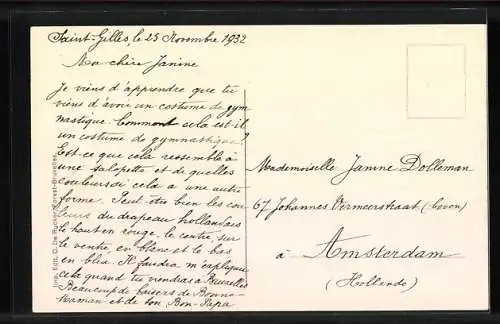 Saint-Gilles, le 25 Novembre 1932
Ma chère Janine
Je viens d'apprendre que tu
viens d'avoir un costume de gym
nastique. Comment cela est-il
un costume de gymnastique?
Est-ce que cela ressemble à
une salopette et de quelles
couleurs ou cela a une autre
forme. Peut-être bien les cou
leurs du drapeau hollandais
le haut en rouge, le centre, sur
le ventre en blanc et le bas
en bleu. Il faudra m'expliquer
cela quand tu viendras à Bruxelles
Beaucoup de baisers de Bonne-
maman et de ton Bon-Papa
Mademoiselle Janine Dolleman
67 Johannes Vermeerstraat (boven)
à Amsterdam
(Hollande)
Imp. Edit. G. De Rycker, Forest-Bruxelles